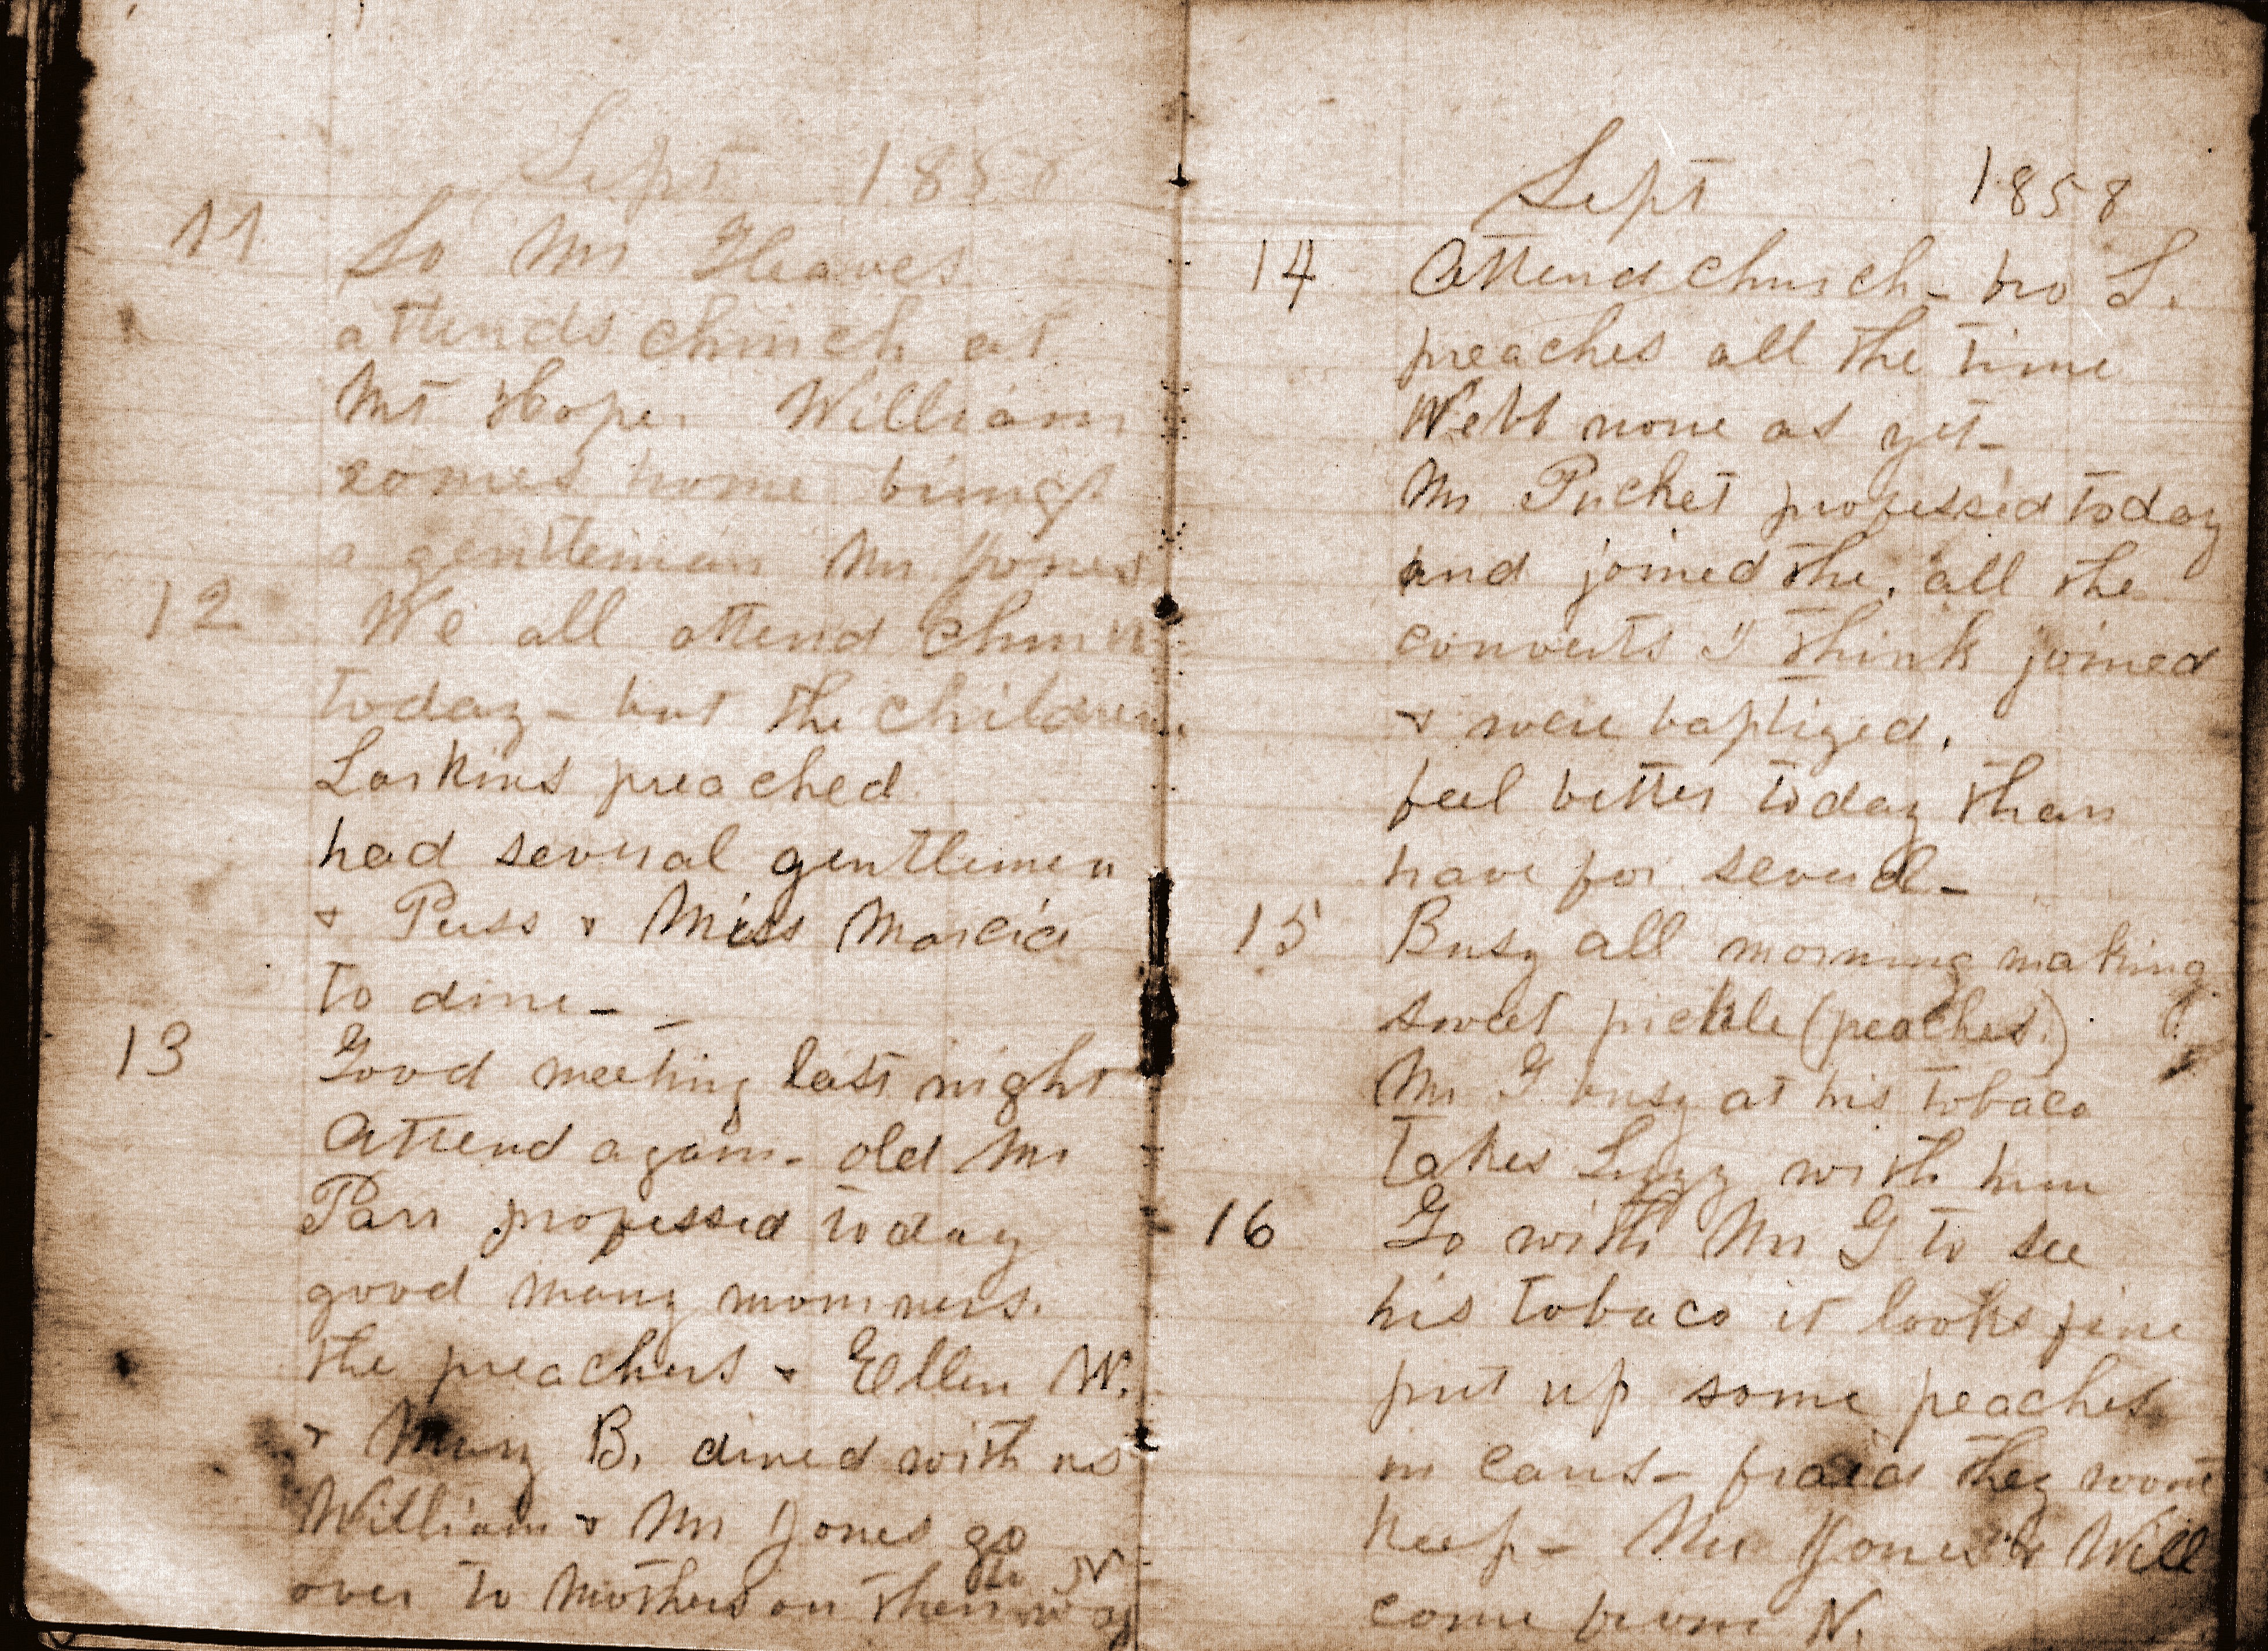 Sept 1858
11 Go Mr Gleaves
attends church at
Mt Hope. William
comes home brings
a gentleman Mr Jones
12 We all attend church
today - but the children.
Larkins preached
had several gentlemen
& Puss & Miss Marcia
to dine -
13 Good meeting last night
Attend again - old Mr
Parr professed today
good many mourners.
the preachers & Ellen W.
& Mary B. dined with us
William & Mr Jones go
to N
over to Mothers on their way
Sept 1858
14 Attend church - bro L.
preaches all the time
Webb none as yet -
Mr Pucket professed today
and joined the. all the
converts I think joined
& were baptized.
feel better today than
have for several -
15 Busy all morning making
sweet pickle (peaches.)
Mr G busy at his tobaco
takes Lizzy with him
16 Go with Mr G to see
his tobaco it looks fine
put up some peaches
in cans - fraid they wont
keep - Mr Jones & Will
come from N.